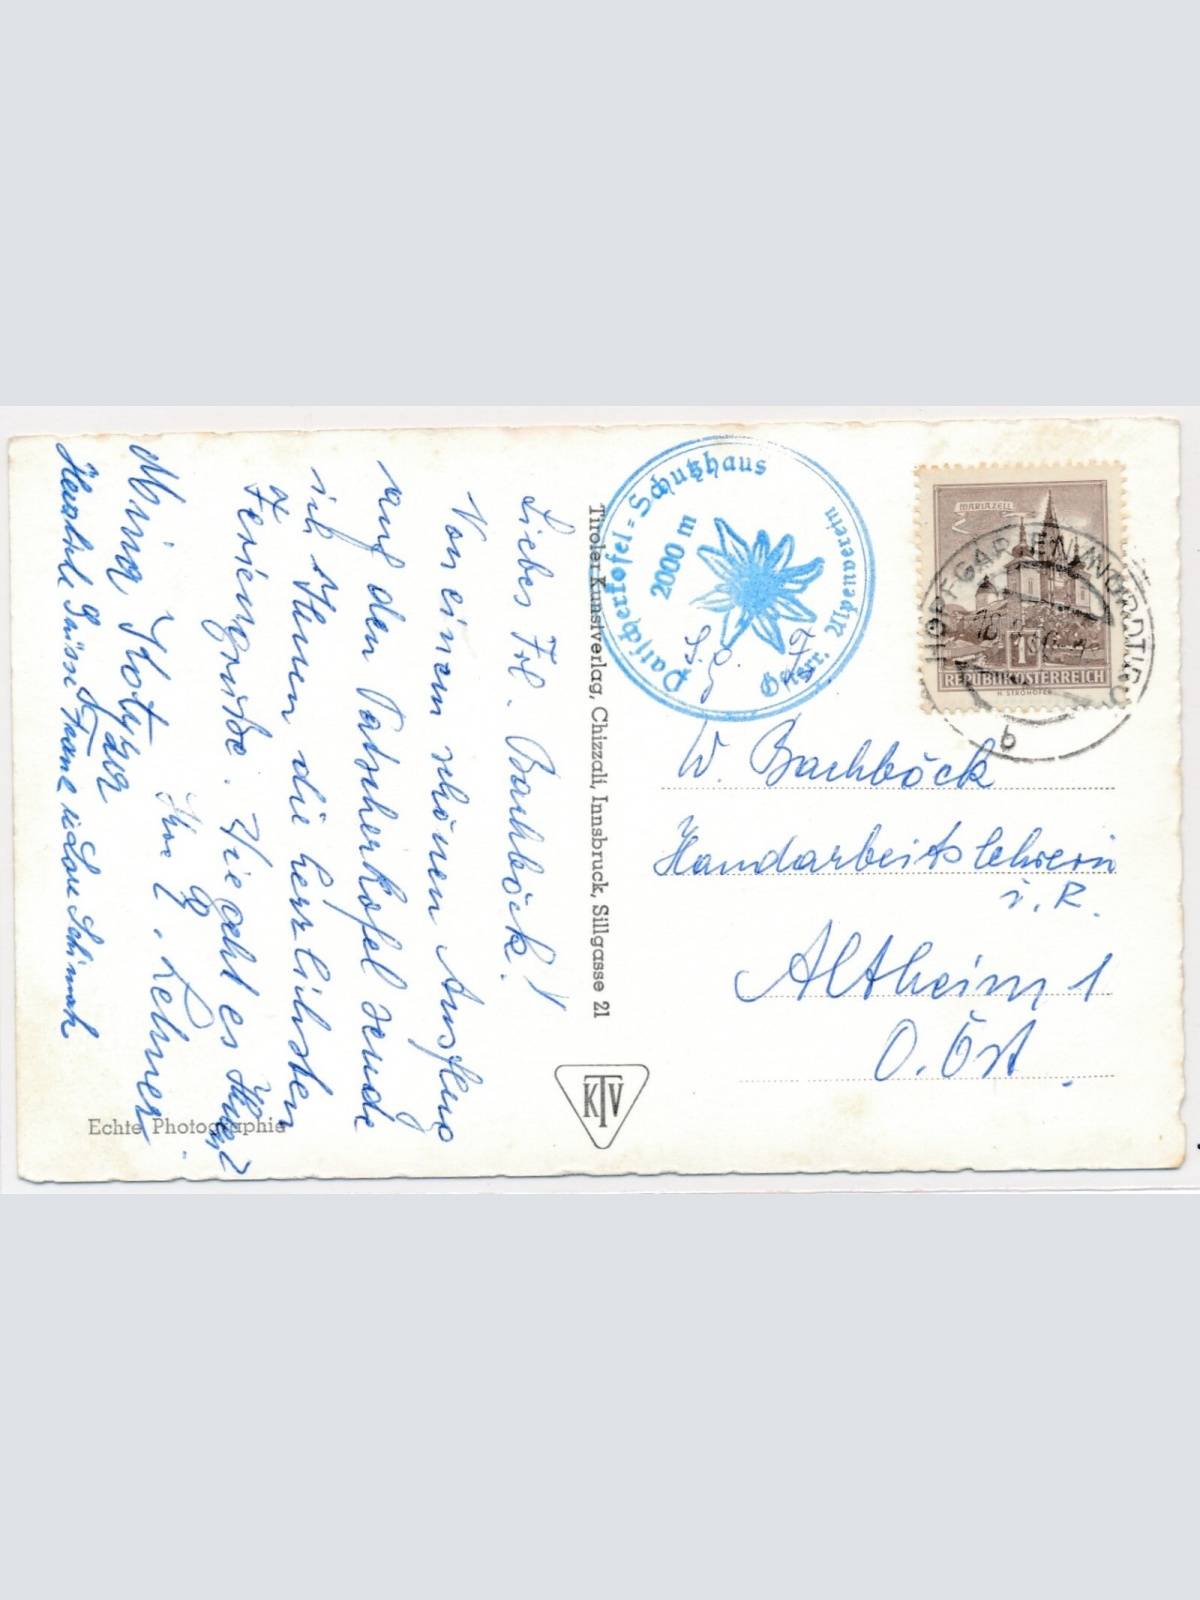 Liebes Frl. Bachböck!
Von einem schönen Ausflug
auf den Patscherkofel sende
ich Ihnen die herzlichsten
Feriengrüße. Wie geht es Ihnen?
Ihre L. Lehner
Herzliche Grüsse
Patscherkofel=Schutzhaus
2000 m
Österr. Alpenverein
S. g. F.
W. Bachböck
Handarbeitslehrerin
i. R.
Altheim 1
O. Öst.
MARIAZELL
1S
REPUBLIK ÖSTERREICH
H. STROHOFER
HOPFGARTEN, NORDTIROL
b
Tiroler Kunstverlag, Chizzali, Innsbruck, Sillgasse 21
KTV
Echte Photographie